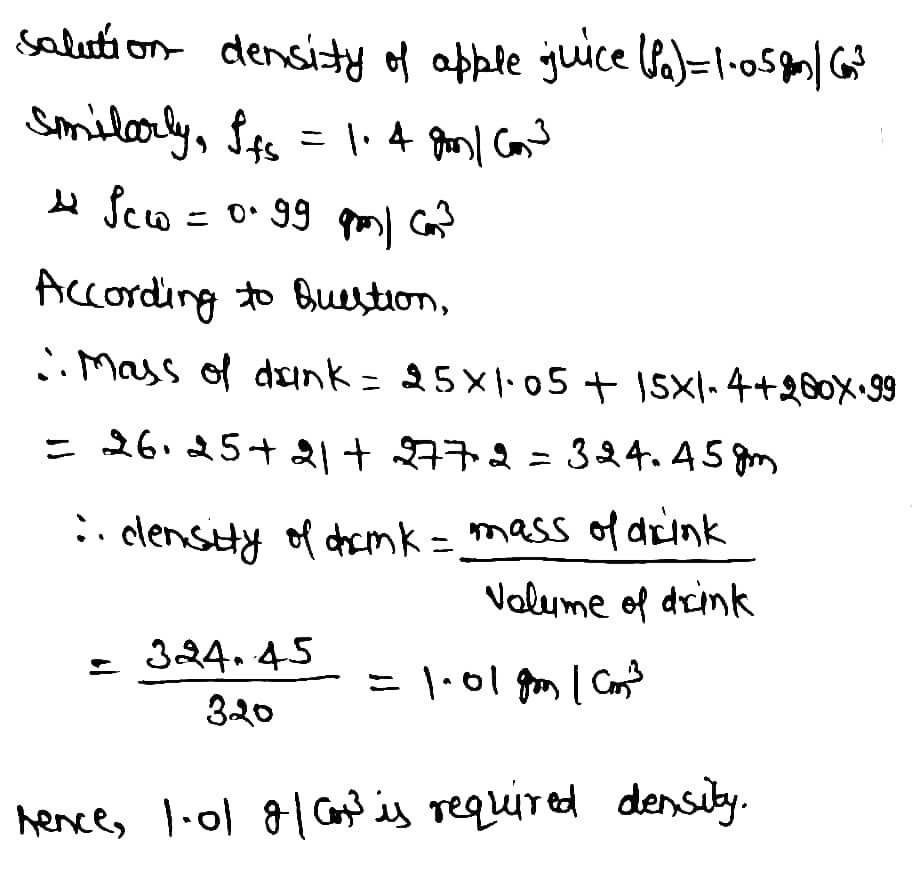 Solution density of apple juice (ρa)=1.05gm/Cm³
Similarly, ρfs = 1.4 gm/Cm³
" ρcw = 0.99 gm/Cm³
According to Question,
∴ Mass of drink = 25×1.05 + 15×1.4+280×.99
= 26.25+21+277.2 = 324.45gm
∴ density of drink = mass of drink
Volume of drink
= 324.45 / 320 = 1.01 gm/Cm³
hence, 1.01 g/Cm³ is required density.